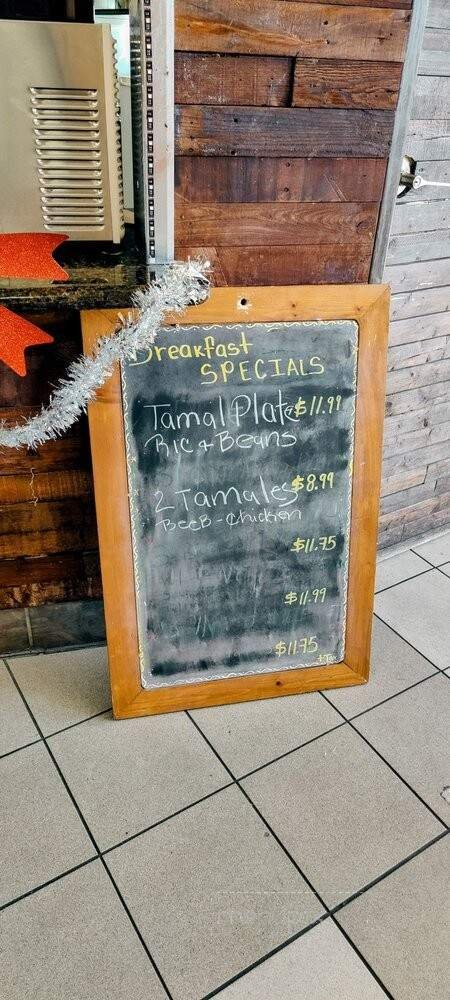 Breakfast
SPECIALS
Tamal Plate $11.99
Ric + Beans
2 Tamales $8.99
BeeB - Chicken
$11.75
$11.99
$11.75